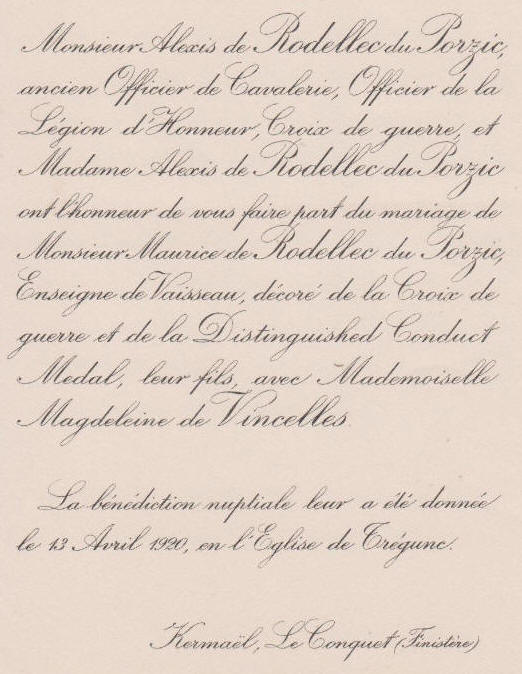 Monsieur Alexis de Rodellec du Porzic,
ancien Officier de Cavalerie, Officier de la
Légion d'Honneur, Croix de guerre, et
Madame Alexis de Rodellec du Porzic
ont l'honneur de vous faire part du mariage de
Monsieur Maurice de Rodellec du Porzic,
Enseigne de Vaisseau, décoré de la Croix de
guerre et de la Distinguished Conduct
Medal, leur fils, avec Mademoiselle
Magdeleine de Vincelles.
La bénédiction nuptiale leur a été donnée
le 13 Avril 1920, en l'Eglise de Trégunc.
Kermaël, Le Conquet (Finistère)